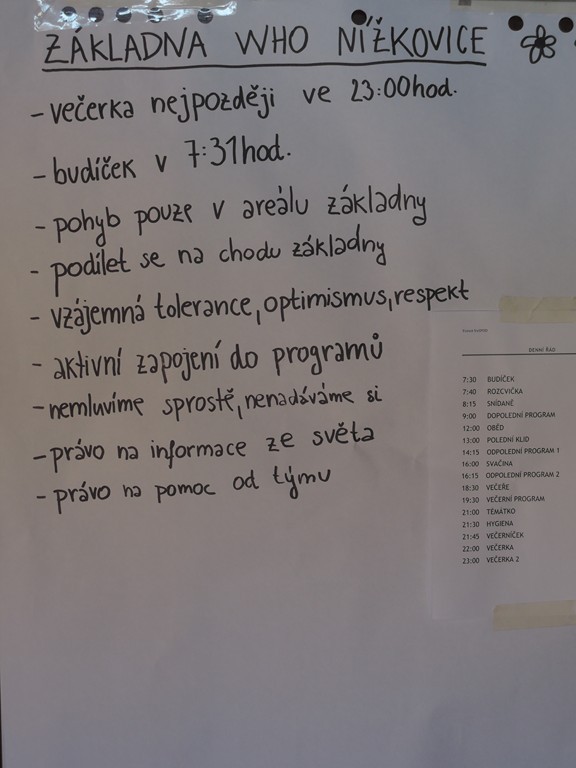 ZÁKLADNA WHO NÍŽKOVICE
- večerka nejpozději ve 23:00hod.
- budíček v 7:31hod.
- pohyb pouze v areálu základny
- podílet se na chodu základny
- vzájemná tolerance, optimismus, respekt
- aktivní zapojení do programů
- nemluvíme sprostě, nenadáváme si
- právo na informace ze světa
- právo na pomoc od týmu
DENNÍ ŘÁD
7:30 BUDÍČEK
7:40 ROZCVIČKA
8:15 SNÍDANĚ
9:00 DOPOLEDNÍ PROGRAM
12:00 OBĚD
13:00 POLEDNÍ KLID
14:15 ODPOLEDNÍ PROGRAM 1
16:00 SVAČINA
16:15 ODPOLEDNÍ PROGRAM 2
18:30 VEČEŘE
19:30 VEČERNÍ PROGRAM
21:00 TÉMÁTKO
21:30 HYGIENA
21:45 VEČERNÍČEK
22:00 VEČERKA
23:00 VEČERKA 2